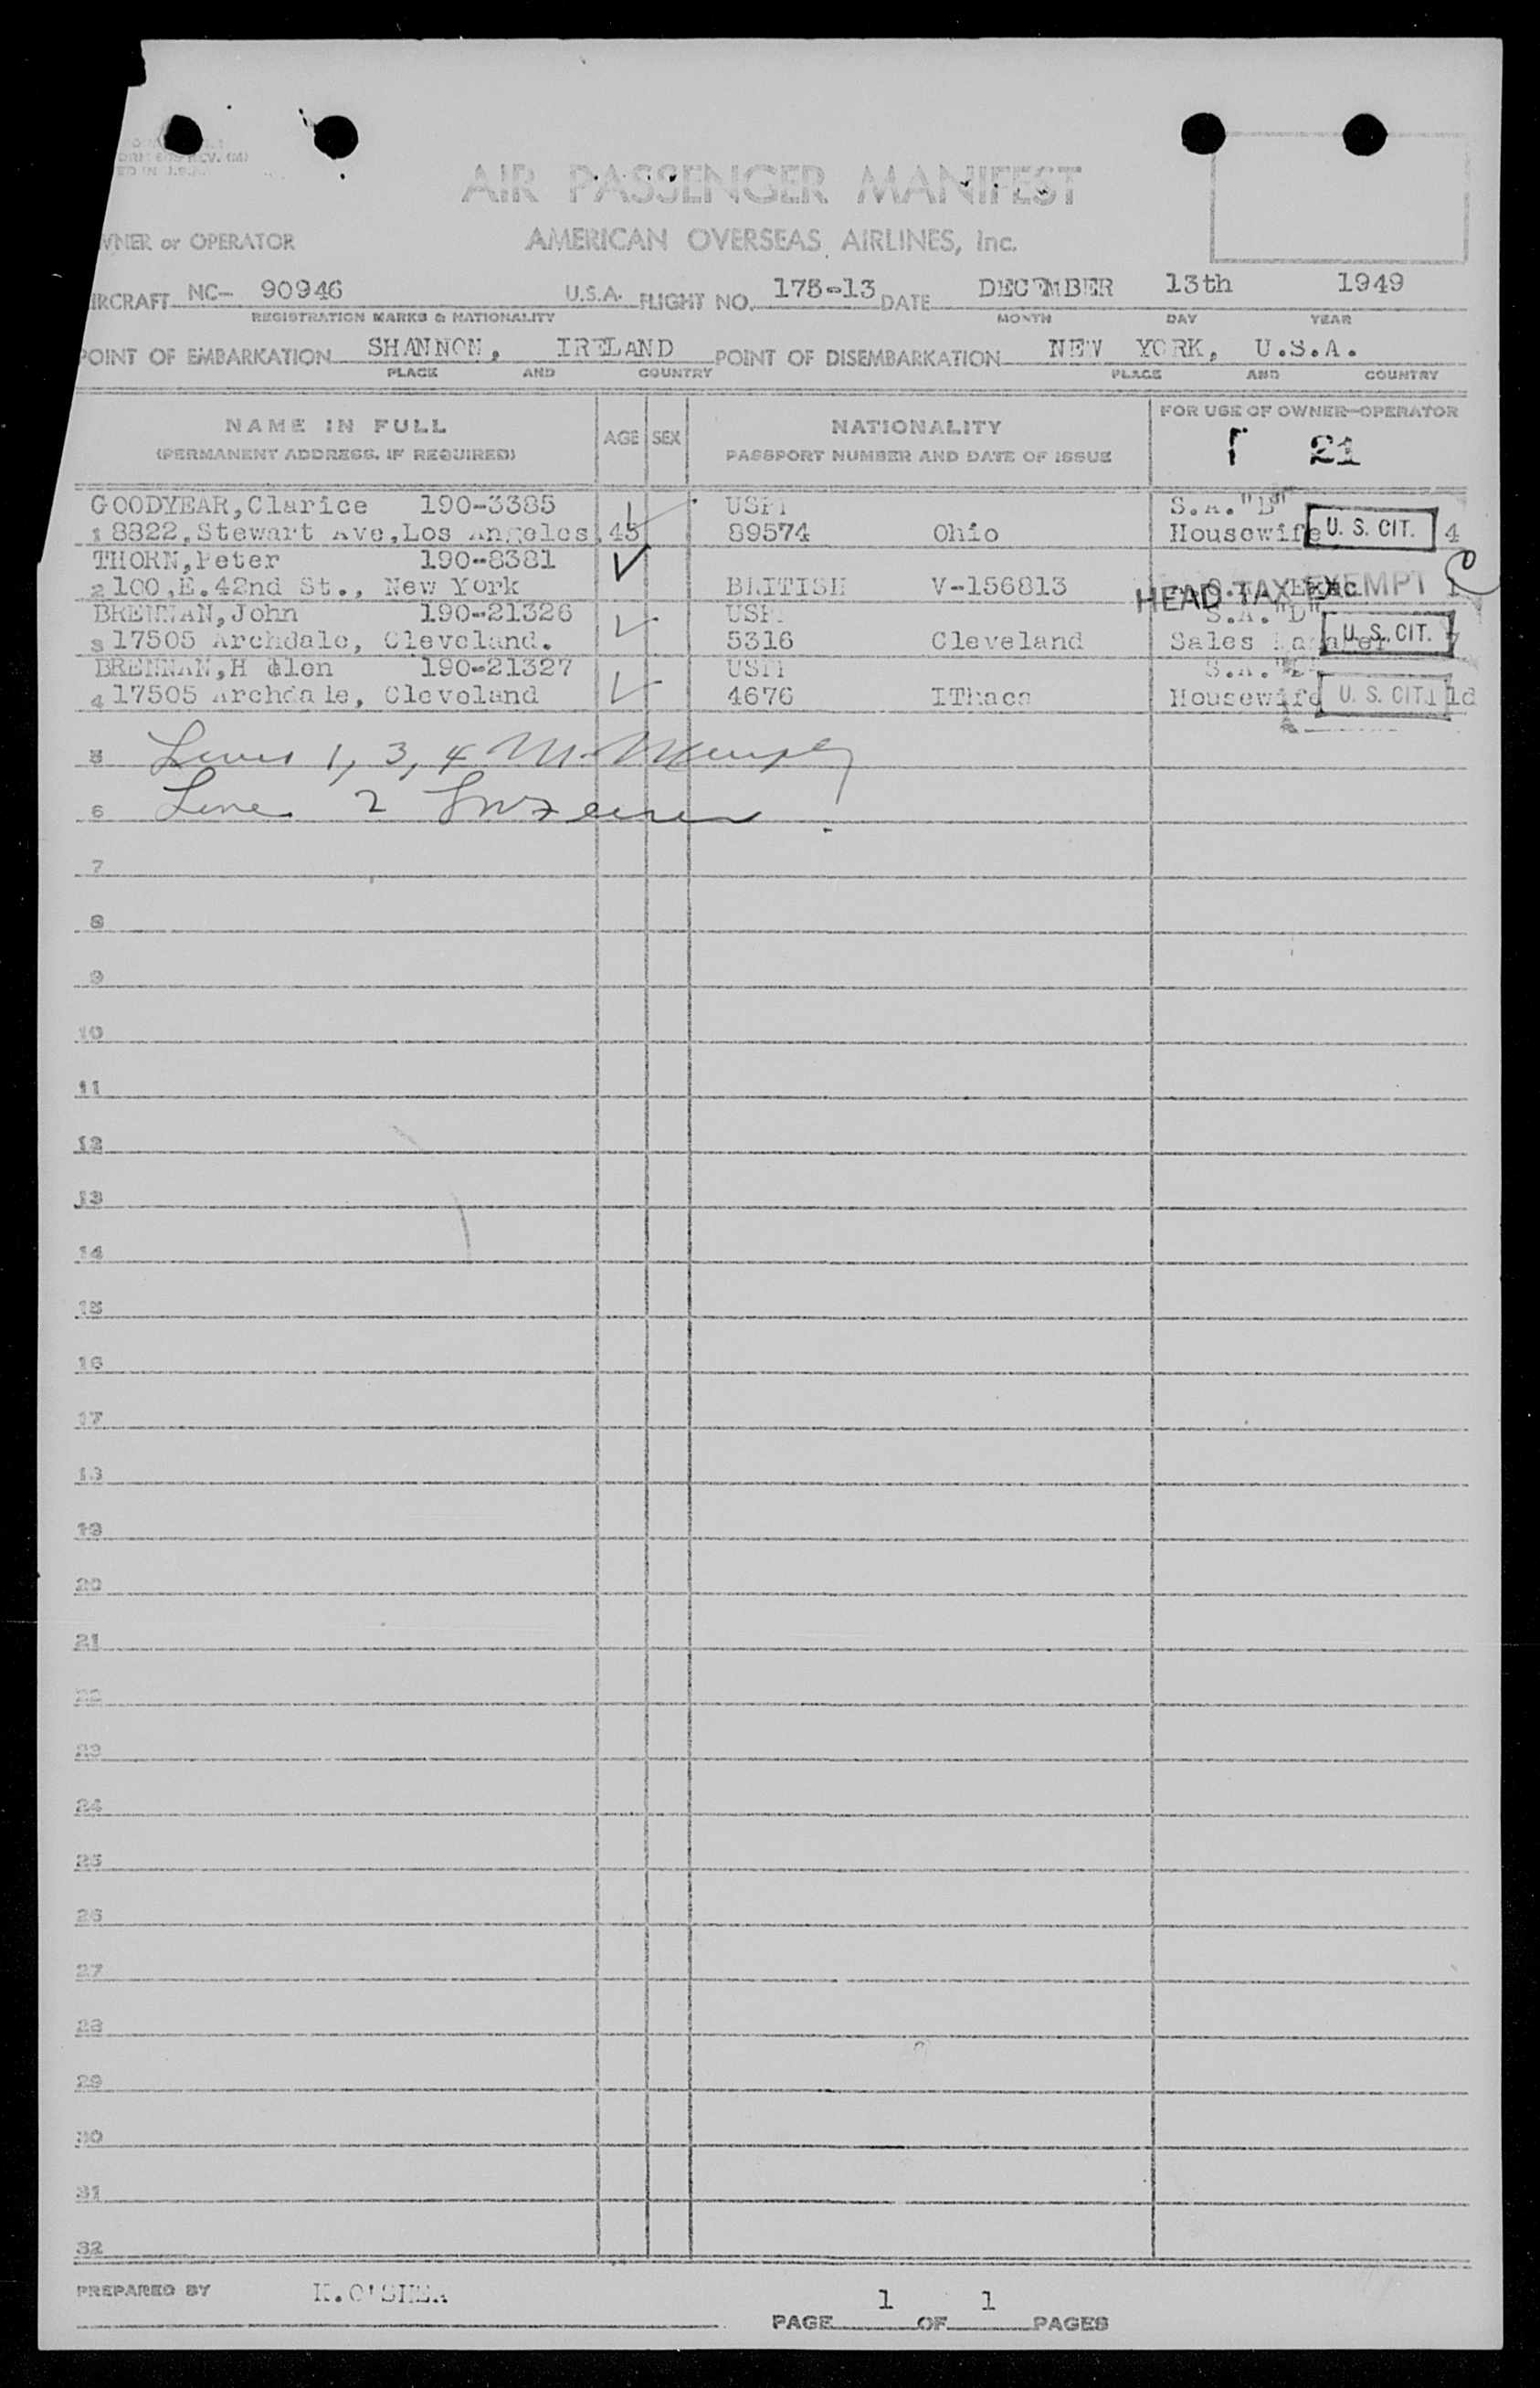 REV. (M)
AIR PASSENGER MANIFEST
OWNER or OPERATOR AMERICAN OVERSEAS AIRLINES, Inc.
AIRCRAFT NC- 90946 U.S.A. FLIGHT NO. 175-13 DATE DECEMBER 13th 1949
REGISTRATION MARKS & NATIONALITY MONTH DAY YEAR
POINT OF EMBARKATION SHANNON, IRELAND POINT OF DISEMBARKATION NEW YORK, U.S.A.
PLACE AND COUNTRY PLACE AND COUNTRY
NAME IN FULL AGE SEX NATIONALITY FOR USE OF OWNER—OPERATOR
(PERMANENT ADDRESS, IF REQUIRED) PASSPORT NUMBER AND DATE OF ISSUE 21
GOODYEAR,Clarice 190-3385 S.A."B"
1 8822,Stewart Ave,Los Angeles, 45 89574 Ohio Housewife U. S. CIT. 4
THORN,Peter 190-8381
2 100,E.42nd St., New York BRITISH V-156813 HEAD TAX EXEMPT
BRENNAN,John 190-21326 S.A."D"
3 17505 Archdale, Cleveland. 5316 Cleveland Sales Manager U. S. CIT.
BRENNAN,H elen 190-21327
4 17505 Archdale, Cleveland 4676 IThaca Housewife U. S. CIT.
5 Lines 1, 3, 4 M. Murphy
6 Line 2
7
8
9
10
11
12
13
14
15
16
17
18
19
20
21
22
23
24
25
26
27
28
29
30
31
32
PREPARED BY K.O'SHEA
PAGE 1 OF 1 PAGES